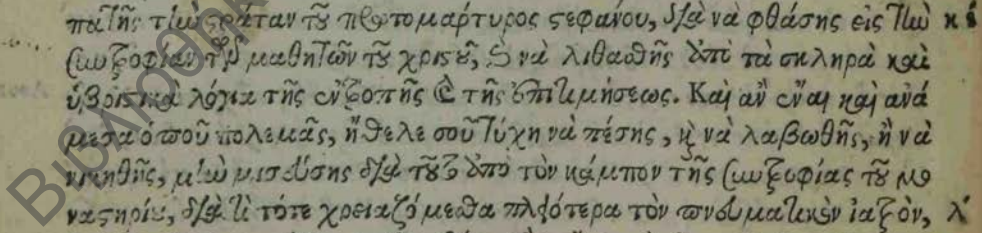 πατῇς τὴν στράταν τοῦ πρωτομάρτυρος στεφάνου, διὰ νὰ φθάσῃς εἰς τὴν κέ
συντροφίαν τῶν μαθητῶν τοῦ χριστοῦ, καὶ νὰ λιθασθῇς ἀπὸ τὰ σκληρὰ καὶ
ὑβριστικὰ λόγια τῆς ἐντροπῆς καὶ τῆς ἐπιτιμήσεως. Καὶ ἂν εἶναι καὶ ἀνά
μεσα ὁποῦ πολεμᾶς, ἤθελε σοῦ τύχῃ νὰ πέσῃς, καὶ νὰ λαβωθῇς, ἢ νὰ
νικηθῇς, μὴν μισεύσῃς διὰ τοῦτο ἀπὸ τὸν κάμπον τῆς συντροφίας τοῦ μο
ναστηρίου, διατὶ τότε χρειαζόμεσθα πλειότερα τὸν πνευματικὸν ἰατρὸν, λ΄
Βιβλιοθήκη